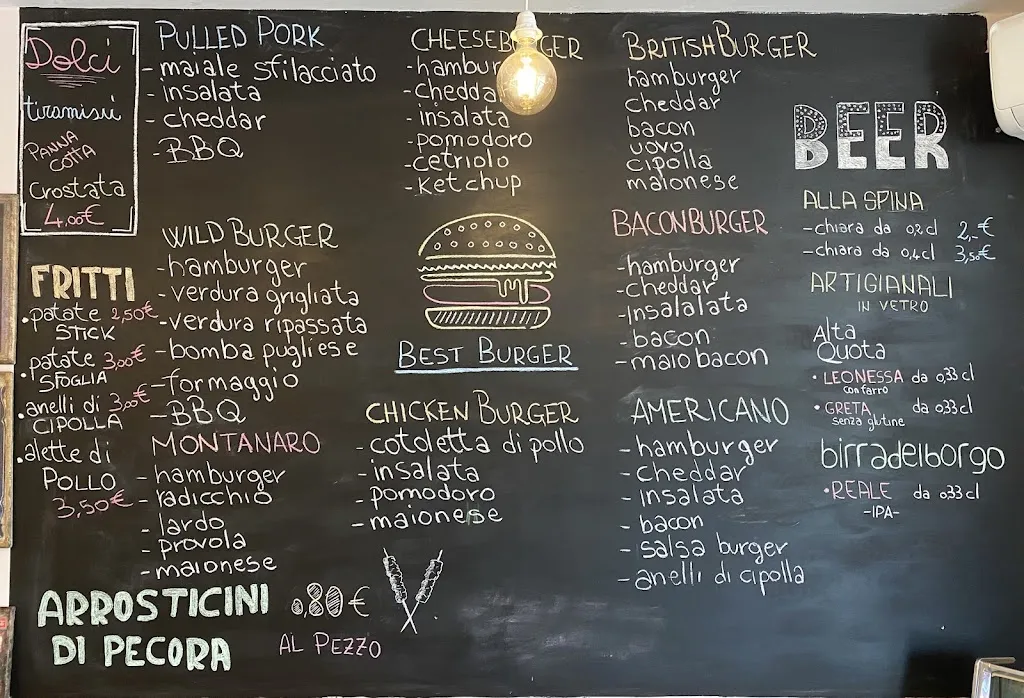 Dolci
tiramisù
PANNA
COTTA
Crostata
4,00€
FRITTI
•patate 2,50€
STICK
•patate 3,00€
SFOGLIA
•anelli di 3,00€
CIPOLLA
•alette di
POLLO
3,50€
PULLED PORK
- maiale sfilacciato
- insalata
- cheddar
- BBQ
WILD BURGER
- hamburger
- verdura grigliata
- verdura ripassata
- bomba pugliese
- formaggio
- BBQ
MONTANARO
- hamburger
- radicchio
- lardo
- provola
- maionese
ARROSTICINI
DI PECORA
0,80€
AL PEZZO
CHEESEBURGER
- hambur
- chedda
- insalata
- pomodoro
- cetriolo
- Ketchup
BEST BURGER
CHICKEN BURGER
- cotoletta di pollo
- insalata
- pomodoro
- maionese
BRITISH BURGER
hamburger
cheddar
bacon
uovo
cipolla
maionese
BACONBURGER
- hamburger
- cheddar
- insalalata
- bacon
- maio bacon
AMERICANO
- hamburger
- cheddar
- insalata
- bacon
- salsa burger
- anelli di cipolla
BEER
ALLA SPINA
- chiara da 0,2cl 2,-€
- chiara da 0,4cl 3,50€
ARTIGIANALI
IN VETRO
Alta
Quota
• LEONESSA da 0,33 cl
con farro
• GRETA da 0,33 cl
senza glutine
birradelborgo
• REALE da 0,33 cl
-IPA-